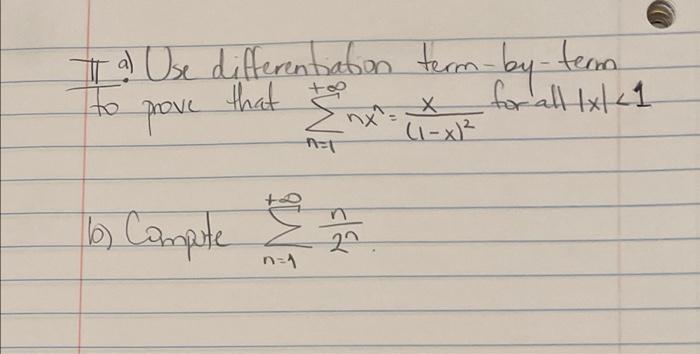 II a) Use differentiation term-by-term
to prove that +∞∑n=1 nxⁿ = x/(1-x)² for all |x|<1
b) Compute +∞∑n=1 n/2ⁿ.